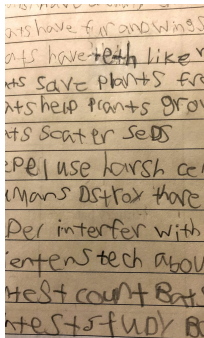 ats have fur and wings
ats have teth like
ts save plants fr
ats help plants gro
ts scater seds
pel use harsh ce
mans Dstrox thare
Del interfer with
entens tech abou
test count Bat
ntests fudy B